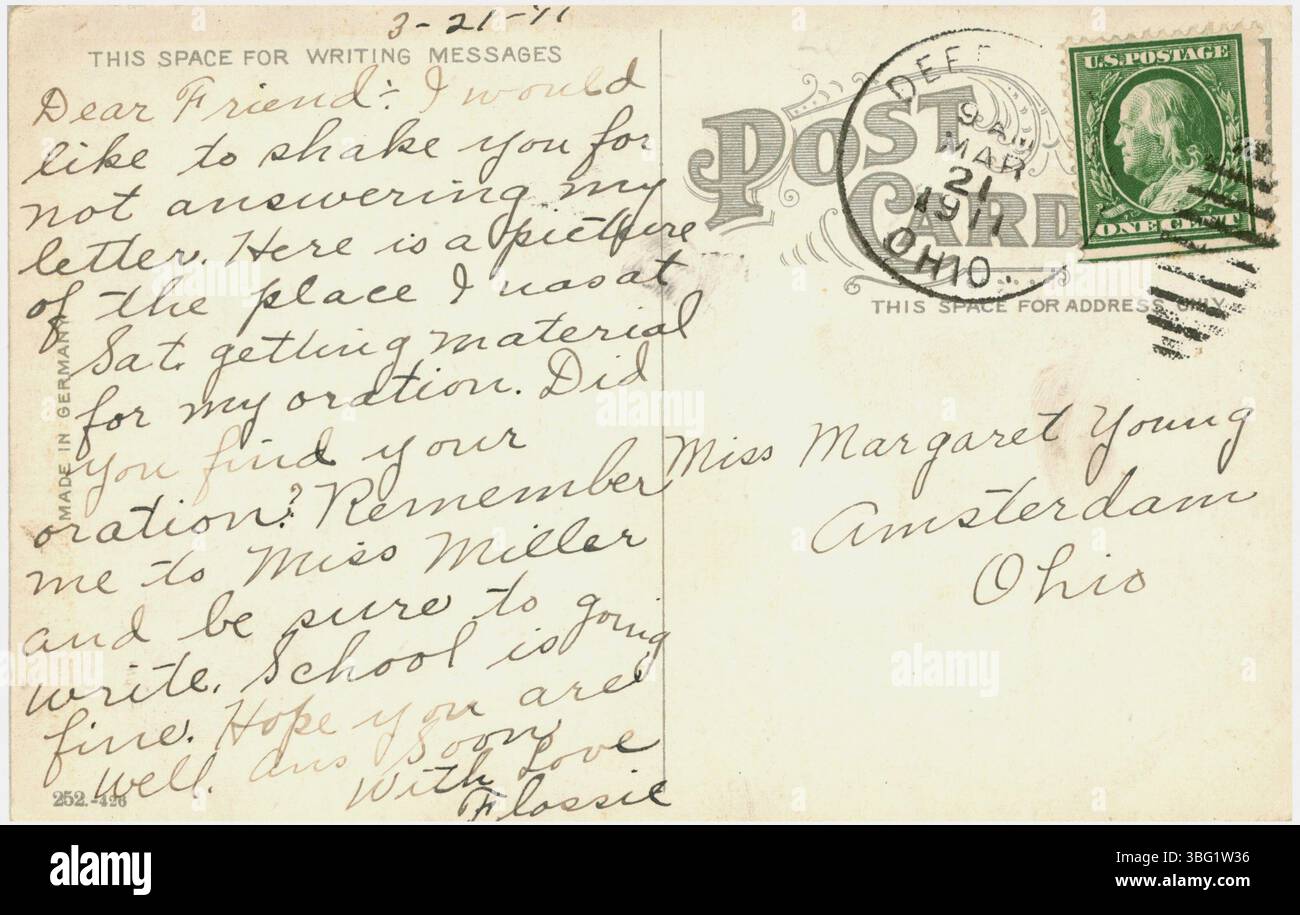 3-21-11
THIS SPACE FOR WRITING MESSAGES
Dear Friend:- I would
like to shake you for
not answering my
letter. Here is a picture
of the place I was at
Sat. getting material
for my oration. Did
you find your
oration? Remember
me to Miss Miller
and be sure to
write. School is going
fine. Hope you are
well. ans soon
With Love
Flossie
MADE IN GERMANY
252.-426
POST
CARD
THIS SPACE FOR ADDRESS ONLY
DEF
9 AM
MAR
21
1911
OHIO.
U.S. POSTAGE
ONE CENT
Miss Margaret Young
Amsterdam
Ohio
alamy
alamy
Image ID: 3BG1W36
www.alamy.com